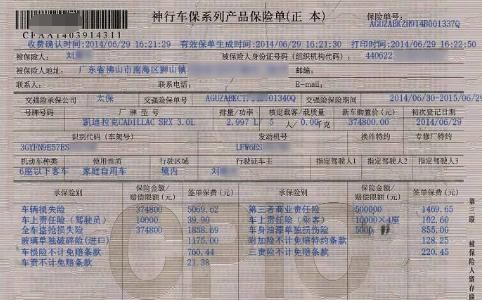 神行车保系列产品保险单(正 本)
保险单号: AGUZABKZH914B001337Q
CFAA1403914311
收费确认时间:2014/06/29 16:21:29 有效保单生成时间:2014/06/29 16:21:30 打印时间:2014/06/29 16:22:50
被保险人: 刘 被保险人身份证号码(组织机构代码): 440622
被保险人地址: 广东省佛山市南海区狮山镇 邮编:
联系人: 联系电话: E-mail:
交强险承保公司 太保 交强险保单号 交强险保险期间 2014/06/30-2015/06/29
号牌号码 厂 牌 型 号 排量/功率 核定载客/载质量 新车购置价 初次登记日期
凯迪拉克CADILLAC SRX 3.0L 2.997 L 5 人/ 0.00千克 374800.00 2014/06/29
识别代码(车架号) 发动机号 操作特约 专修厂特约
3GYFN9E57ES LFW6ES
机动车种类 使用性质 行驶区域 行驶证车主 指定驾驶人1 指定驾驶人2 指定驾驶人3
6座以下客车 家庭自用车 境内 刘
承保险别 保险金额/赔偿限额(元) 签单保费(元) 承保险别 保险金额/赔偿限额(元) 签单保费(元)
车辆损失险 374800 5069.62 第三者商业责任险 500000 1469.65
车上责任险(驾驶员) 10000 39.90 车上责任险(乘客) 10000×4座 102.60
全车盗抢损失险 374800 1858.69 车身油漆单独损伤险 5000 855.06
玻璃单独破碎险(进口) 1175.00 附加险不计免赔特约条款 128.25
车损险不计免赔条款 760.44 三责险不计免赔条款 220.45
车责不计免赔条款 21.38
CPIC